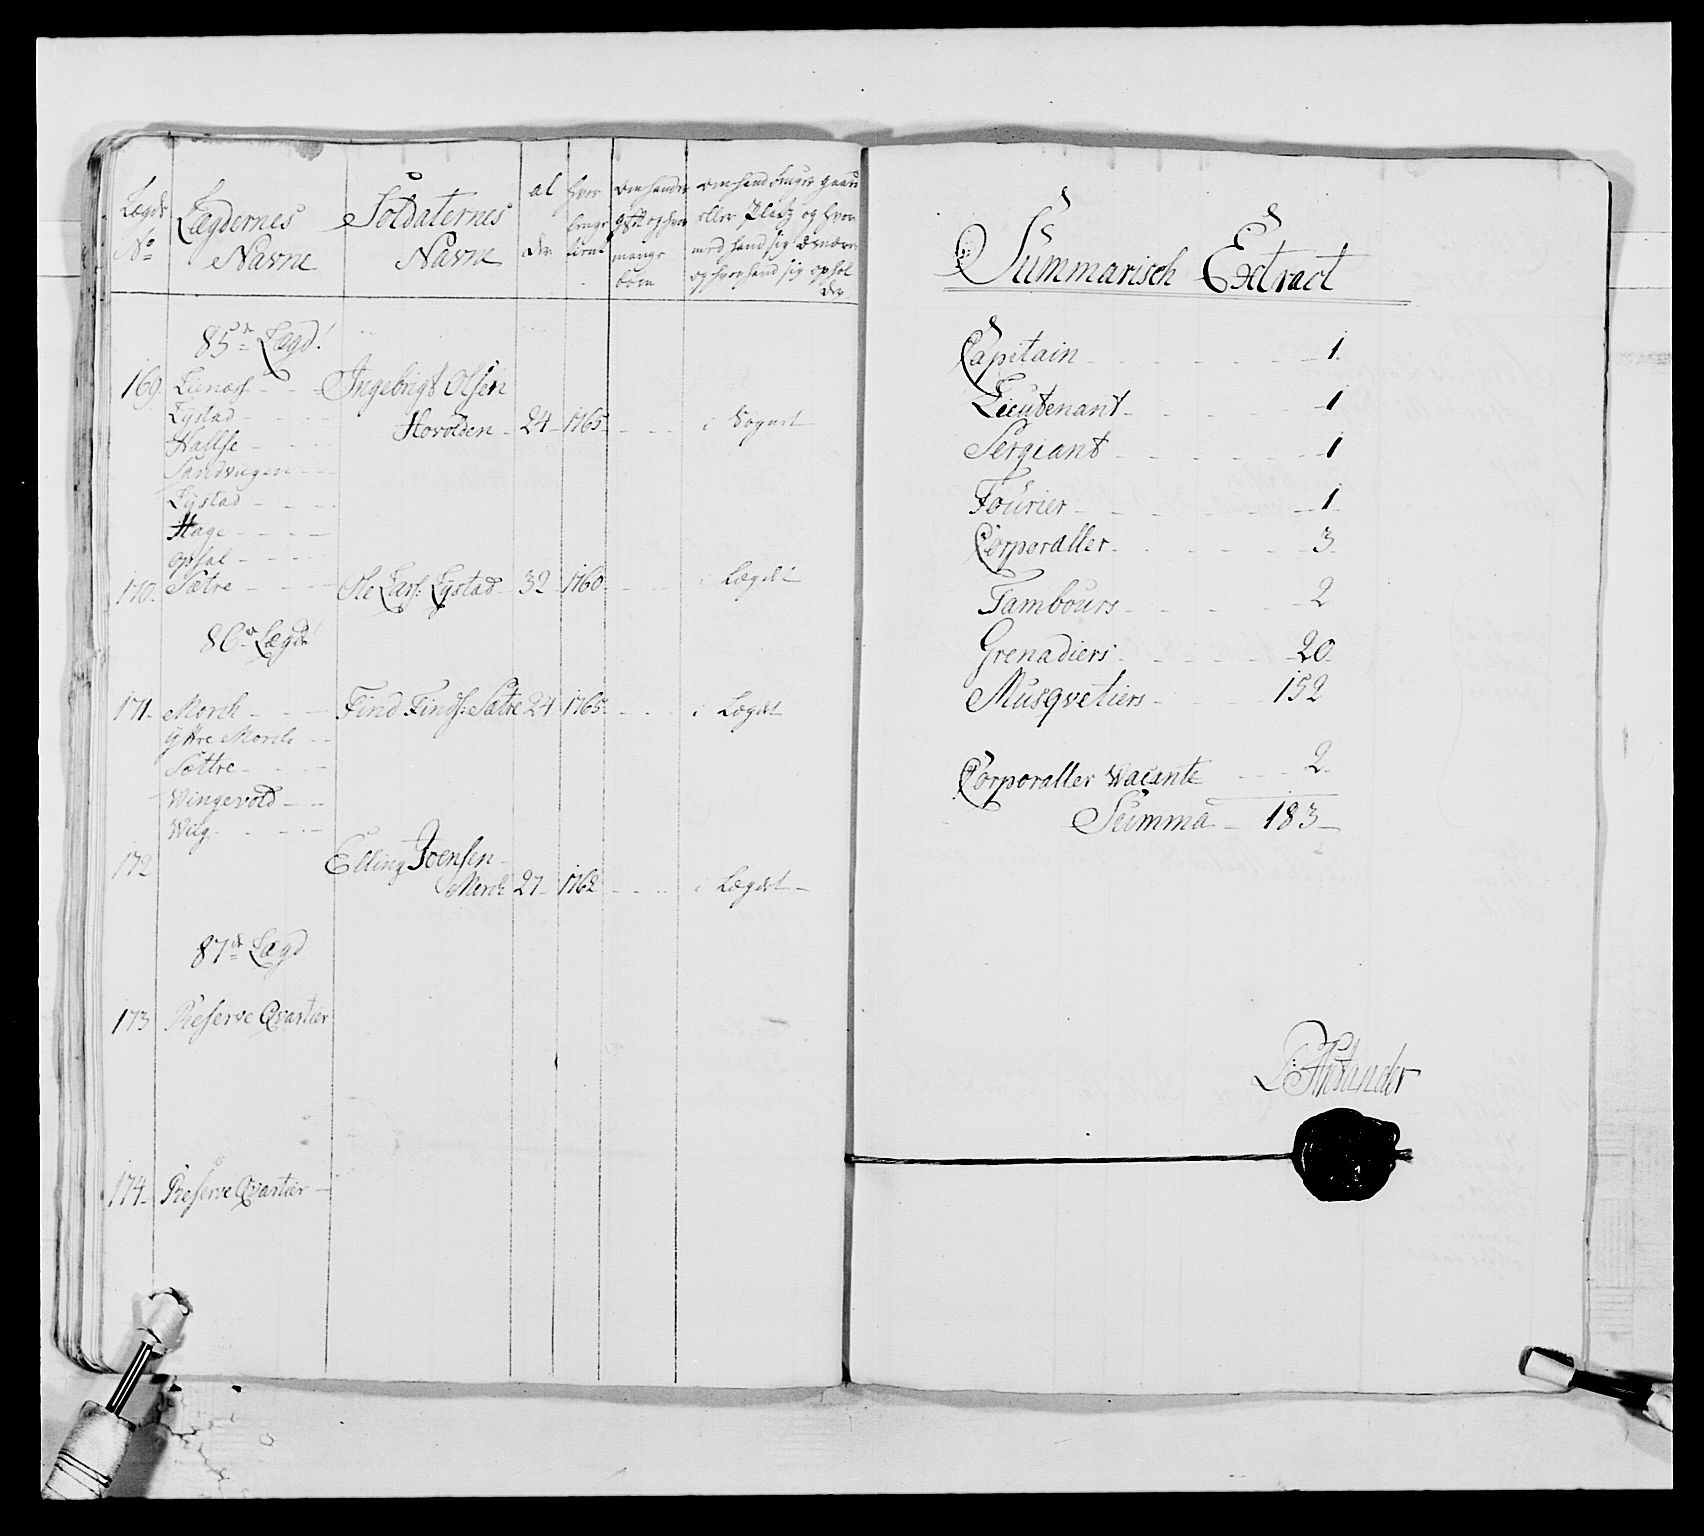 Lægds No
Lægdernes Navne
Soldaternes Navne
al der
hvor længe tient
Om hand er gift og hvor mange børn
Om hand bruger gaard eller Pladz og hvor med hand sig ernærer og hvor hand sig ophol der
85de Lægd!
169. Lienæss Ingebrigt Olsen
Lystad
Hovolden 24 1765 i Sognet
Næsse
Sandvigen
Lystad
Hage
Opsal
170. Sætre Ole Lars: Lystad 32 1760 i Lægdet
86de Lægd!
171 Morch Find Finds: Sætre 24 1765 i Lægdet
Yttre Morch
Sættre
Wingevold
Wiig
172 Elling Joensen
Morch 27 1762 i Lægdet
87de Lægd
173 Reserve Qvartier
174 Reserve Qvartier
Summarisch Extract
Capitain 1
Lieutenant 1
Sergiant 1
Fourier 1
Corporaller 3
Tambours 2
Grenadiers 20
Musqvetiers 152
Corporaller Wacante 2
Summa 183